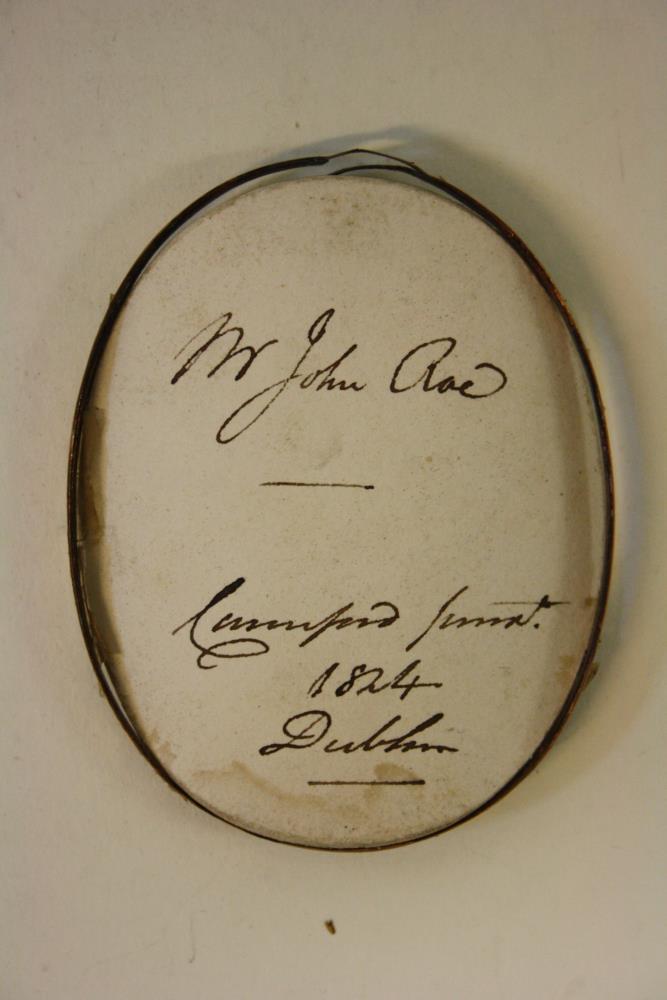 Mr John Roe
Cumerford pinxt.
1824
Dublin